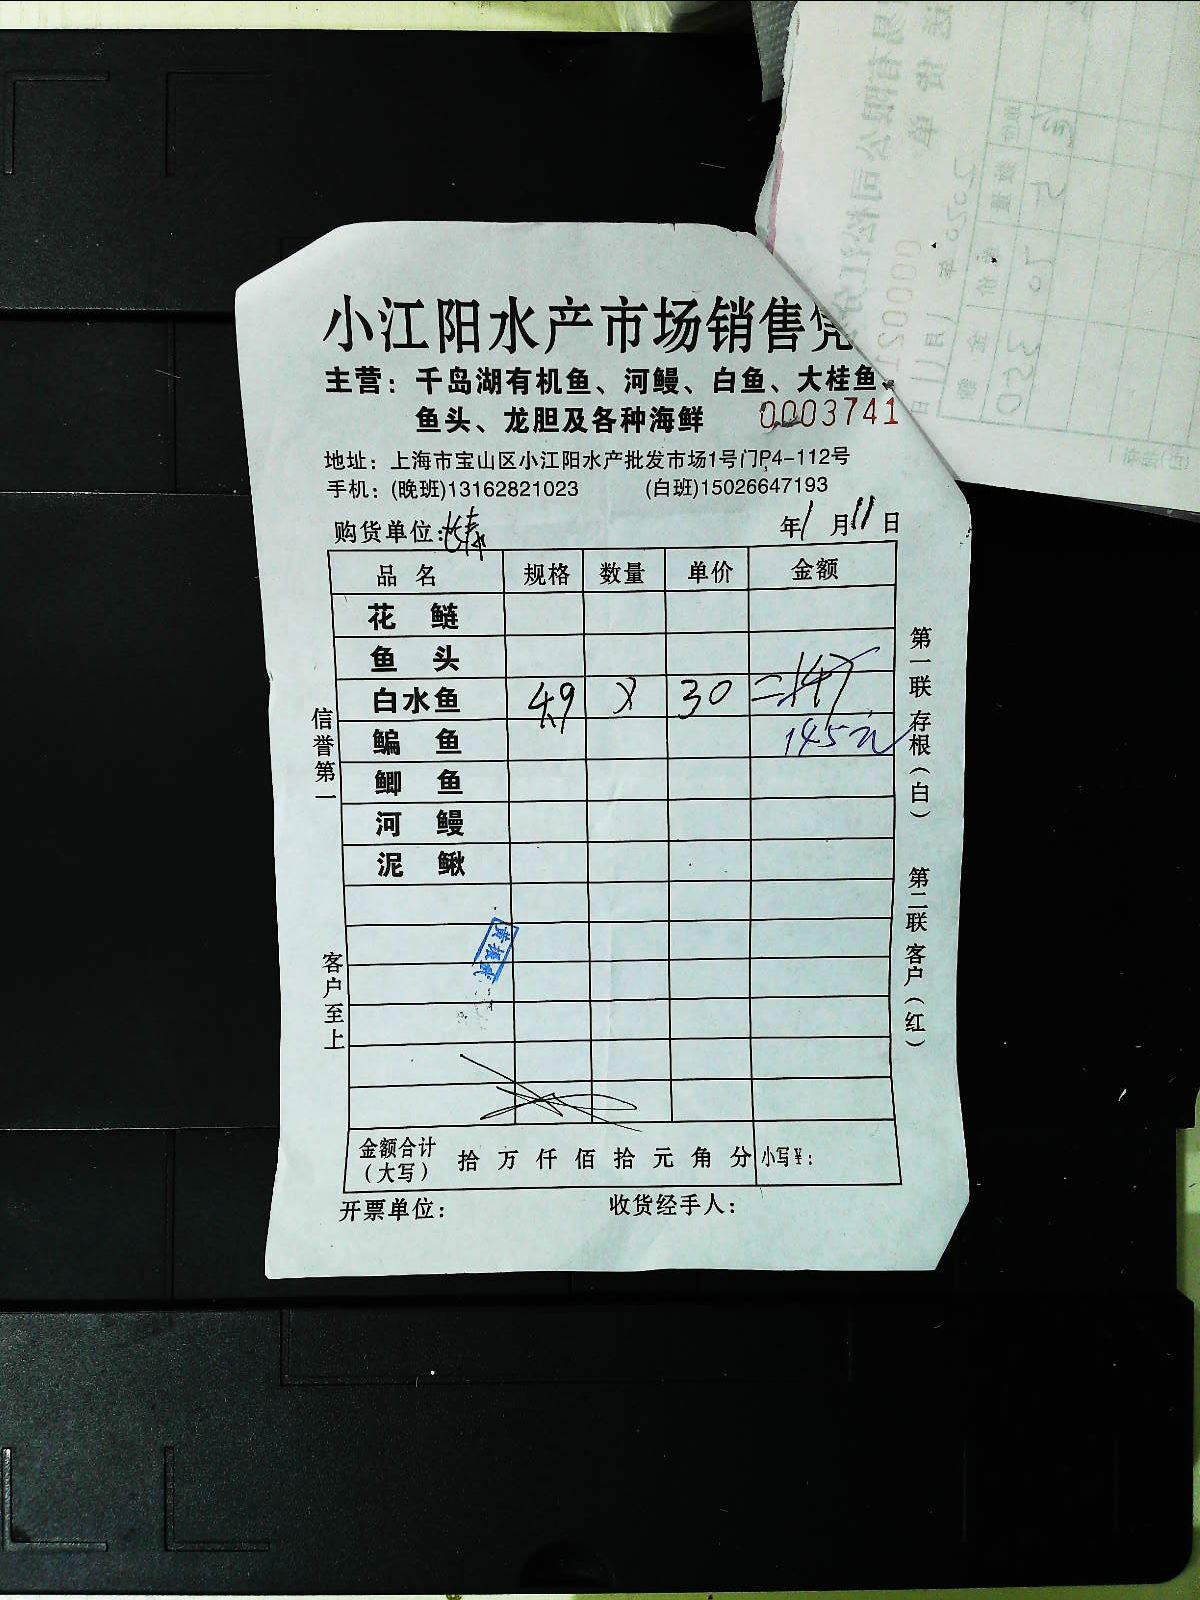 小江阳水产市场销售凭
主营：千岛湖有机鱼、河鳗、白鱼、大桂鱼、
鱼头、龙胆及各种海鲜 0003741
地址：上海市宝山区小江阳水产批发市场1号门P4-112号
手机：(晚班)13162821023 (白班)15026647193
购货单位： 年1月11日
品名 规格 数量 单价 金额
花鲢
鱼头
白水鱼 4.9 × 30 =147
鳊鱼 145元
鲫鱼
河鳗
泥鳅
信誉第一
客户至上
第一联 存根（白）
第二联 客户（红）
金额合计（大写） 拾万仟佰拾元角分 小写¥：
开票单位： 收货经手人：